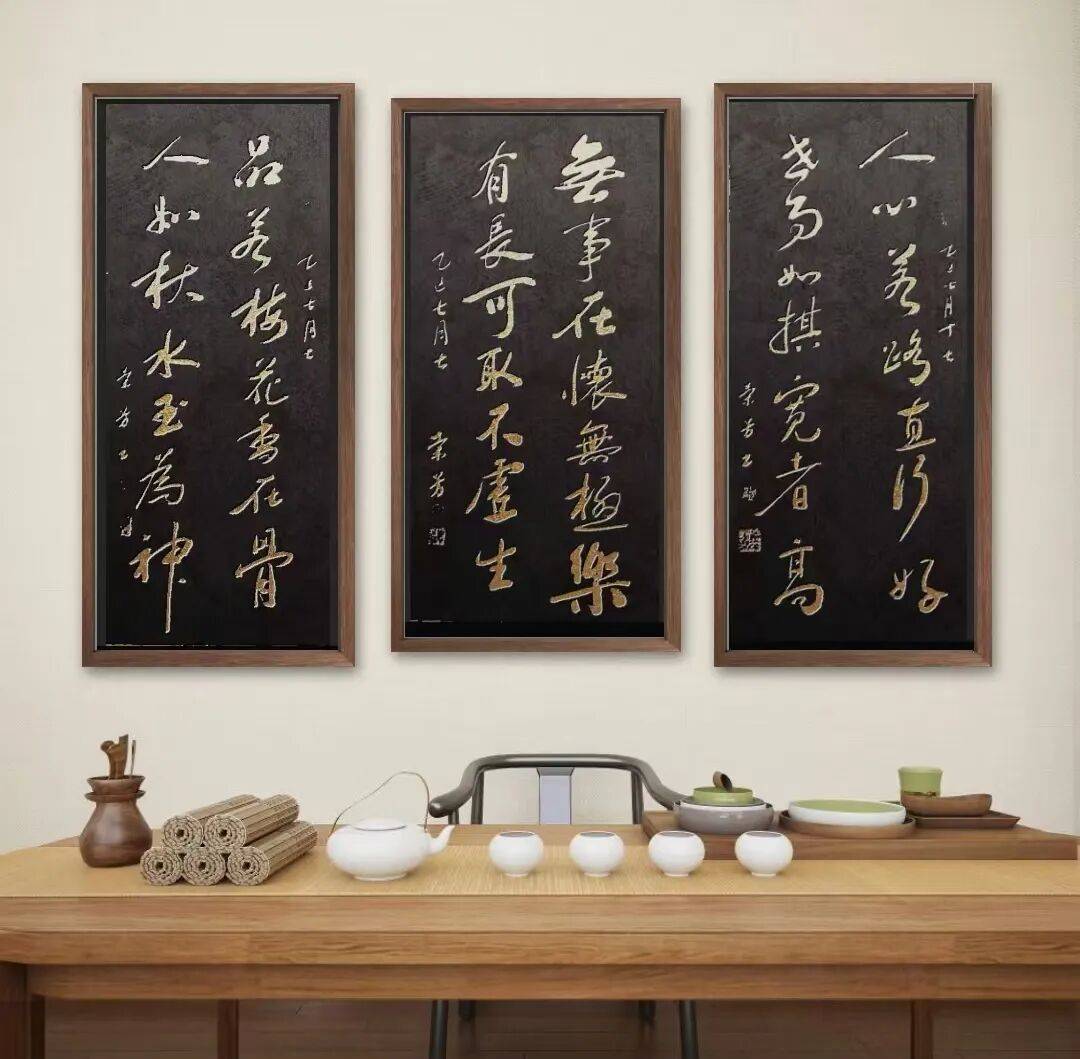 乙巳七月十七
人心若路直行好
世局如棋宽者高
荣芳书
無事在懷無極樂
有長可取不虛生
乙巳七月七
荣芳
乙巳七月七
品若梅花香在骨
人如秋水玉為神
荣芳